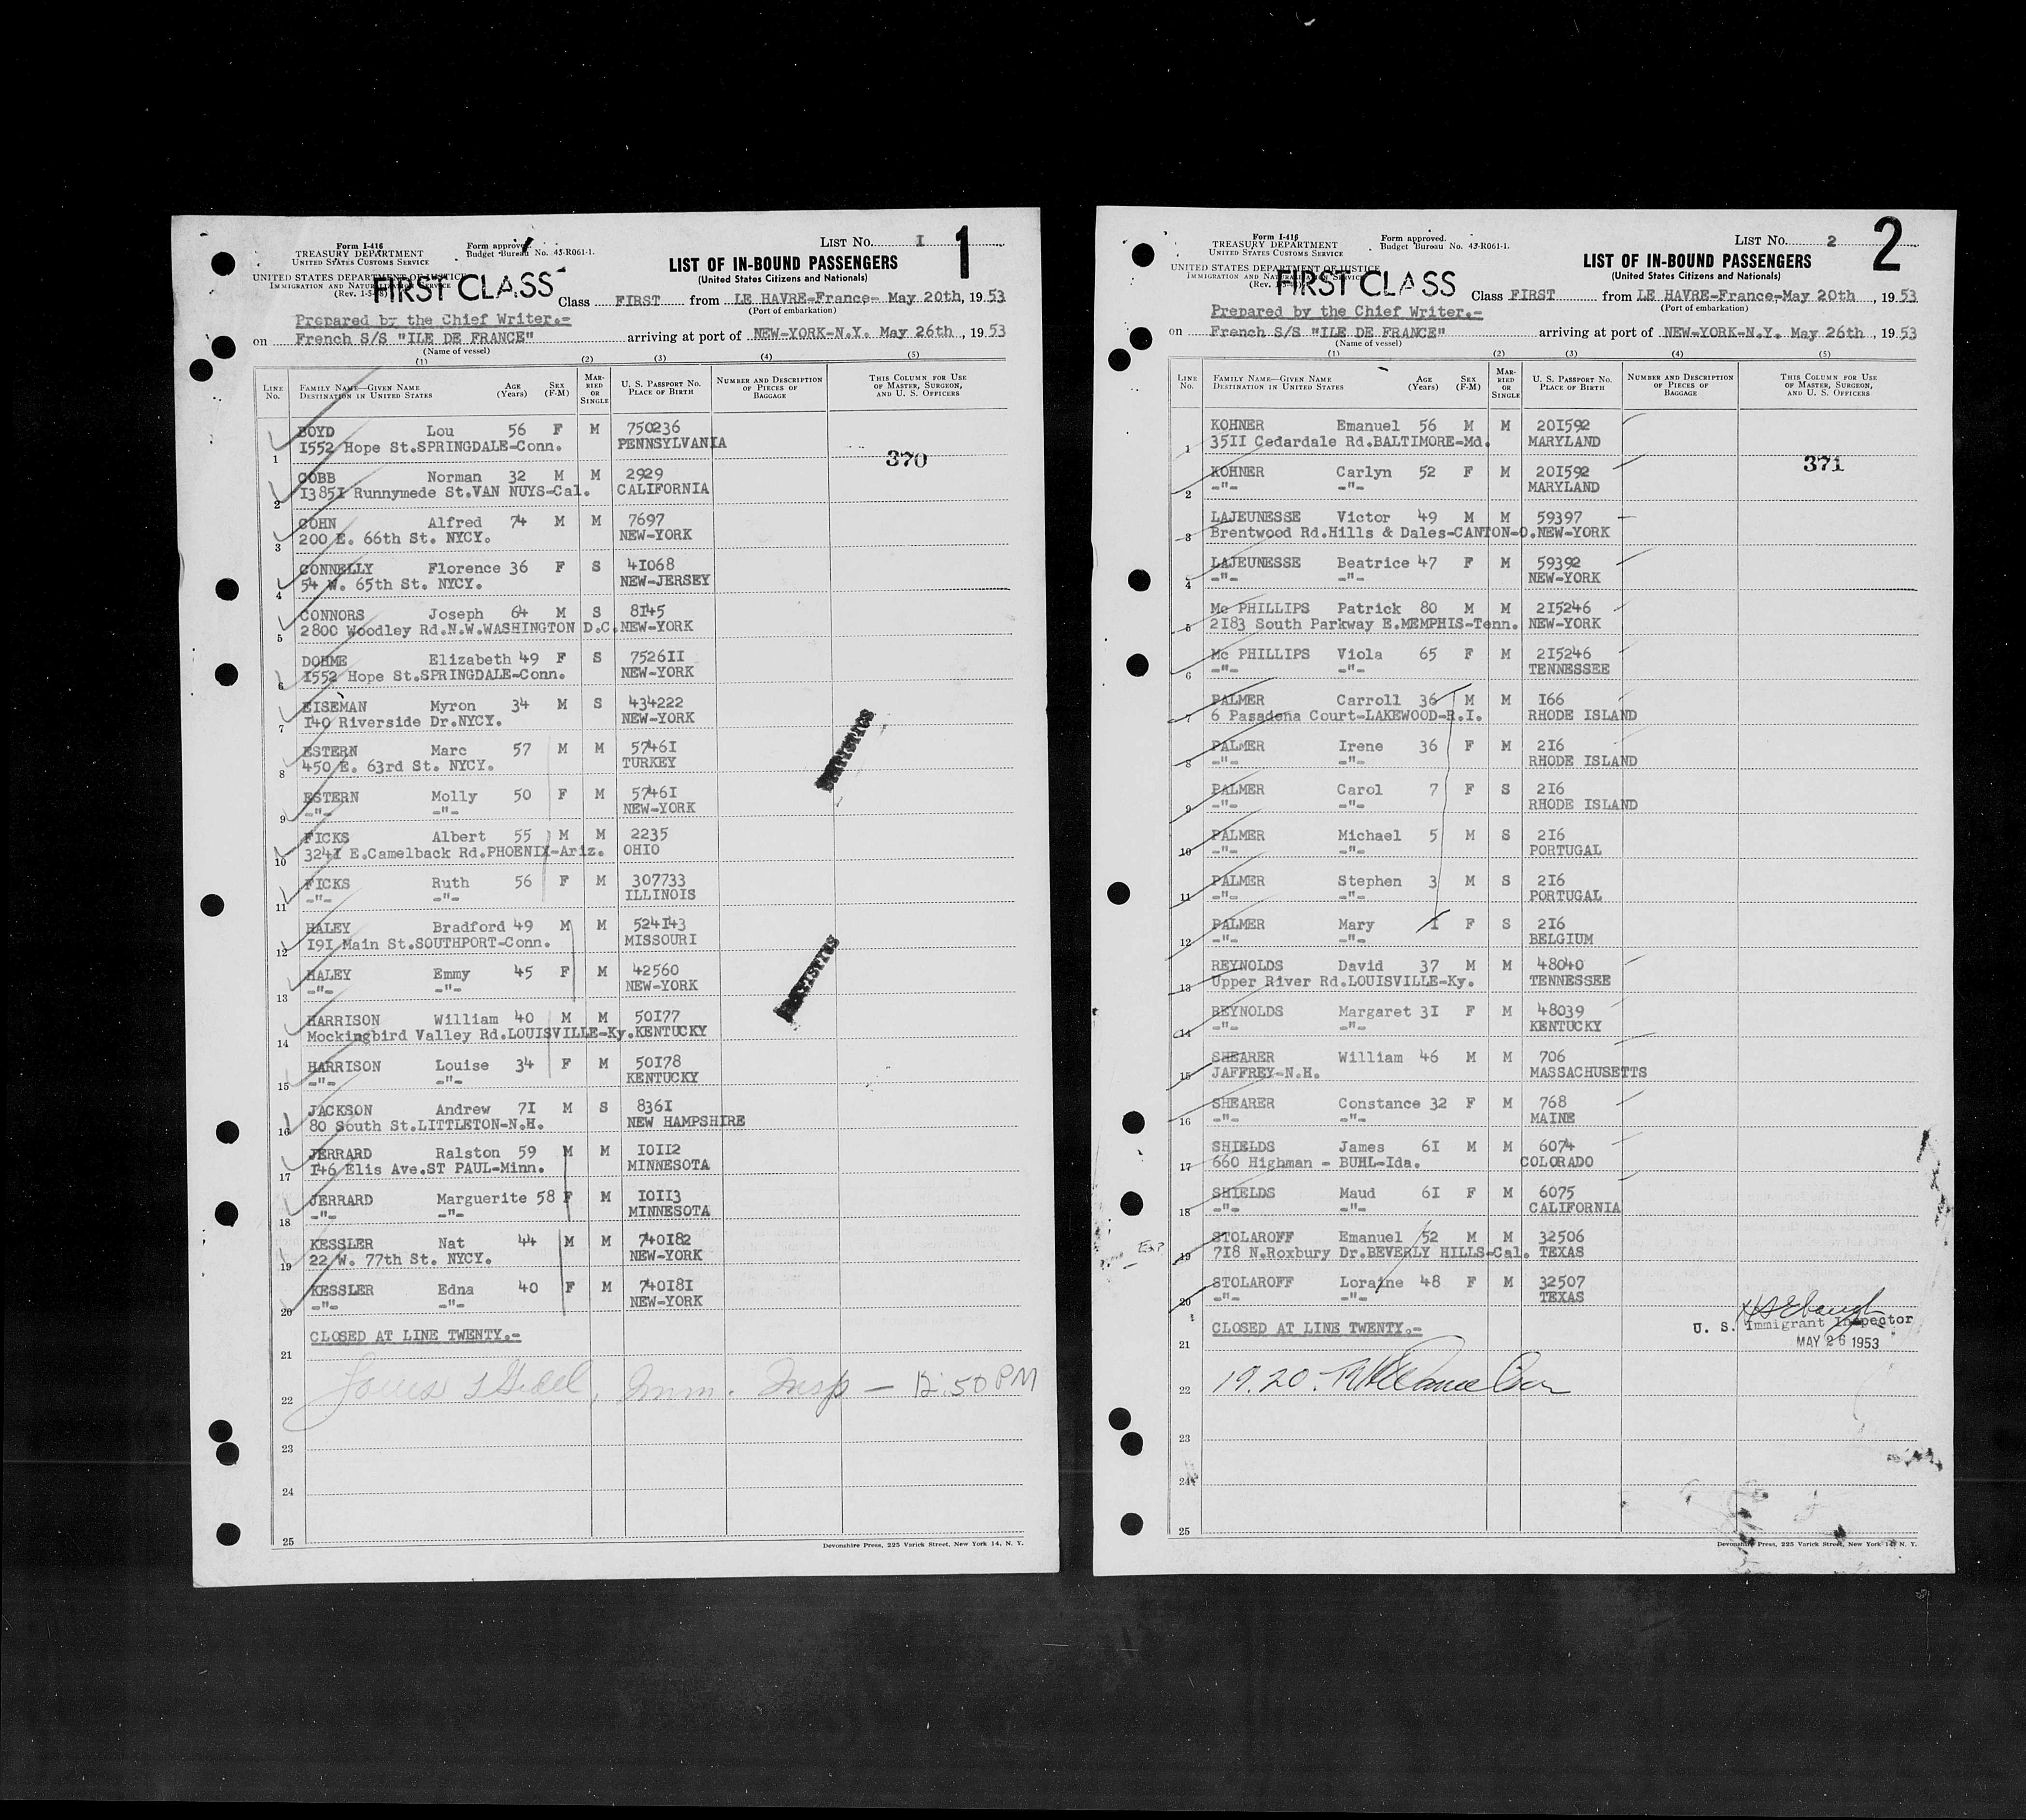 Form I-416
TREASURY DEPARTMENT
UNITED STATES CUSTOMS SERVICE
Form approved.
Budget Bureau No. 43-R061-1.
LIST NO. I 1
UNITED STATES DEPARTMENT OF JUSTICE
IMMIGRATION AND NATURALIZATION SERVICE
(Rev. 1-5-48)
FIRST CLASS
LIST OF IN-BOUND PASSENGERS
(United States Citizens and Nationals)
Class FIRST from LE HAVRE-France- May 20th, 1953
(Port of embarkation)
Prepared by the Chief Writer.-
on French S/S "ILE DE FRANCE" arriving at port of NEW-YORK-N.Y. May 26th, 1953
(Name of vessel)
(1) (2) (3) (4) (5)
LINE No. FAMILY NAME—GIVEN NAME DESTINATION IN UNITED STATES AGE (Years) SEX (F-M) MARRIED OR SINGLE U. S. PASSPORT No. PLACE OF BIRTH NUMBER AND DESCRIPTION OF PIECES OF BAGGAGE THIS COLUMN FOR USE OF MASTER, SURGEON, AND U. S. OFFICERS
BOYD Lou 56 F M 750236
1 I552 Hope St.SPRINGDALE-Conn. PENNSYLVANIA
370
COBB Norman 32 M M 2929
2 I385I Runnymede St.VAN NUYS-Cal. CALIFORNIA
COHN Alfred 74 M M 7697
3 200 E. 66th St. NYCY. NEW-YORK
CONNELLY Florence 36 F S 4I068
4 54 W. 65th St. NYCY. NEW-JERSEY
CONNORS Joseph 64 M S 8I45
5 2800 Woodley Rd.N.W.WASHINGTON D.C. NEW-YORK
DOHME Elizabeth 49 F S 7526II
6 I552 Hope St.SPRINGDALE-Conn. NEW-YORK
EISEMAN Myron 34 M S 434222
7 I40 Riverside Dr.NYCY. NEW-YORK
ESTERN Marc 57 M M 5746I
8 450 E. 63rd St. NYCY. TURKEY
STATISTICS
ESTERN Molly 50 F M 5746I
9 -"- -"- NEW-YORK
FICKS Albert 55 M M 2235
10 324I E.Camelback Rd.PHOENIX-Ariz. OHIO
FICKS Ruth 56 F M 307733
11 -"- -"- ILLINOIS
HALEY Bradford 49 M M 524I43
12 I9I Main St.SOUTHPORT-Conn. MISSOURI
STATISTICS
HALEY Emmy 45 F M 42560
13 -"- -"- NEW-YORK
HARRISON William 40 M M 50I77
14 Mockingbird Valley Rd.LOUISVILLE-Ky. KENTUCKY
HARRISON Louise 34 F M 50I78
15 -"- -"- KENTUCKY
JACKSON Andrew 7I M S 836I
16 80 South St.LITTLETON-N.H. NEW HAMPSHIRE
JERRARD Ralston 59 M M I0II2
17 I46 Elis Ave.ST PAUL-Minn. MINNESOTA
JERRARD Marguerite 58 F M I0II3
18 -"- -"- MINNESOTA
KESSLER Nat 44 M M 740I82
19 22 W. 77th St. NYCY. NEW-YORK
KESSLER Edna 40 F M 740I8I
20 -"- -"- NEW-YORK
CLOSED AT LINE TWENTY.-
21
22 Imm. Insp — 12:50 PM
23
24
25
Devonshire Press, 225 Varick Street, New York 14, N. Y.
Form I-416
TREASURY DEPARTMENT
UNITED STATES CUSTOMS SERVICE
Form approved.
Budget Bureau No. 43-R061-1.
LIST NO. 2 2
UNITED STATES DEPARTMENT OF JUSTICE
IMMIGRATION AND NATURALIZATION SERVICE
(Rev. 1-5-48)
FIRST CLASS
LIST OF IN-BOUND PASSENGERS
(United States Citizens and Nationals)
Class FIRST from LE HAVRE-France-May 20th, 1953
(Port of embarkation)
Prepared by the Chief Writer.-
on French S/S "ILE DE FRANCE" arriving at port of NEW-YORK-N.Y. May 26th, 1953
(Name of vessel)
(1) (2) (3) (4) (5)
LINE No. FAMILY NAME—GIVEN NAME DESTINATION IN UNITED STATES AGE (Years) SEX (F-M) MARRIED OR SINGLE U. S. PASSPORT No. PLACE OF BIRTH NUMBER AND DESCRIPTION OF PIECES OF BAGGAGE THIS COLUMN FOR USE OF MASTER, SURGEON, AND U. S. OFFICERS
KOHNER Emanuel 56 M M 20I592
1 35II Cedardale Rd.BALTIMORE-Md. MARYLAND
371
KOHNER Carlyn 52 F M 20I592
2 -"- -"- MARYLAND
LAJEUNESSE Victor 49 M M 59397
3 Brentwood Rd.Hills & Dales-CANTON-O. NEW-YORK
LAJEUNESSE Beatrice 47 F M 59392
4 -"- -"- NEW-YORK
Mc PHILLIPS Patrick 80 M M 2I5246
5 2I83 South Parkway E.MEMPHIS-Tenn. NEW-YORK
Mc PHILLIPS Viola 65 F M 2I5246
6 -"- -"- TENNESSEE
PALMER Carroll 36 M M I66
7 6 Pasadena Court-LAKEWOOD-R.I. RHODE ISLAND
PALMER Irene 36 F M 2I6
8 -"- -"- RHODE ISLAND
PALMER Carol 7 F S 2I6
9 -"- -"- RHODE ISLAND
PALMER Michael 5 M S 2I6
10 -"- -"- PORTUGAL
PALMER Stephen 3 M S 2I6
11 -"- -"- PORTUGAL
PALMER Mary I F S 2I6
12 -"- -"- BELGIUM
REYNOLDS David 37 M M 48040
13 Upper River Rd.LOUISVILLE-Ky. TENNESSEE
REYNOLDS Margaret 3I F M 48039
14 -"- -"- KENTUCKY
SHEARER William 46 M M 706
15 JAFFREY-N.H. MASSACHUSETTS
SHEARER Constance 32 F M 768
16 -"- -"- MAINE
SHIELDS James 6I M M 6074
17 660 Highman - BUHL-Ida. COLORADO
SHIELDS Maud 6I F M 6075
18 -"- -"- CALIFORNIA
STOLAROFF Emanuel 52 M M 32506
19 7I8 N.Roxbury Dr.BEVERLY HILLS-Cal. TEXAS
STOLAROFF Loraine 48 F M 32507
20 -"- -"- TEXAS
CLOSED AT LINE TWENTY.-
U. S. Immigrant Inspector
MAY 26 1953
21
22 19.20.
23
24
25
Devonshire Press, 225 Varick Street, New York 14, N. Y.